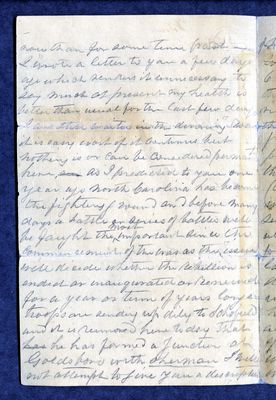 now than for some time past
I wrote a letter to you a few days
ago which renders it unnecessary to
say much at present my health is
better than usual for the last few days
I am other quarter in the
it is easy east of it continues but
nothing is or can be considered permanent
here, as I predicted to you one
year ago North Carolina has become
the fighting ground and before many
days a battle or series of battles will
be fought the most important since the
commencement of the war as the issue
will decide whether the rebellion is
ended or inaugurated or renewed
for a year or term of years longer
troops are sending up daily to Schofield
and it is rumored here to day that
he has formed a junction at
Goldsboro with Sherman I will
not attempt to give you a description